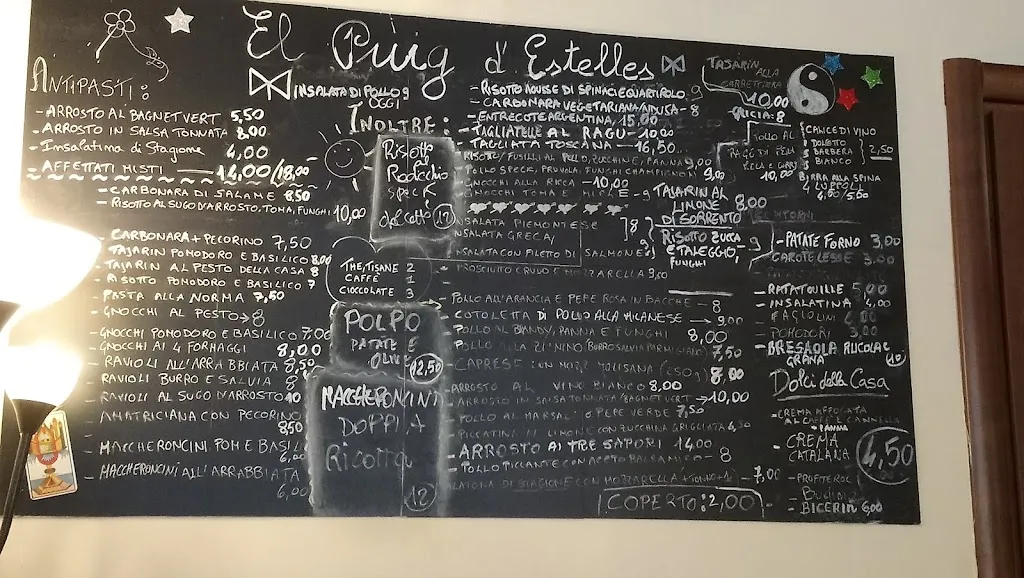 El Puig d'Estelles
ANTIPASTI:
- ARROSTO AL BAGNET VERT 5,50
- ARROSTO IN SALSA TONNATA 8,00
- Insalatina di Stagione 4,00
- AFFETTATI MISTI 14,00/18,00
- CARBONARA DI SALAME 8,50
- RISOTTO AL SUGO D'ARROSTO, TOMA, FUNGHI 10,00
- CARBONARA + PECORINO 7,50
- TAJARIN POMODORO E BASILICO 8,00
- TAJARIN AL PESTO DELLA CASA 8
- RISOTTO POMODORO E BASILICO 7
- PASTA ALLA NORMA 7,50
- GNOCCHI AL PESTO → 8
- GNOCCHI POMODORO E BASILICO 7,00
- GNOCCHI AI 4 FORMAGGI 8,00
- RAVIOLI ALL'ARRABBIATA 8,50
- RAVIOLI BURRO E SALVIA 8
- RAVIOLI AL SUGO D'ARROSTO 10
- AMATRICIANA CON PECORINO 8,50
- MACCHERONCINI POM E BASIL 6,00
- MACCHERONCINI ALL'ARRABBIATA 6,00
INSALATA DI POLLO 9
OGGI
INOLTRE:
Risotto
al
Radicchio
SPECK
12
THE/TISANE 2
CAFFÈ 1
CIOCCOLATE 3
POLPO
PATATE E
OLIVE
12,50
MACCHERONCINI
DOPPIA
Ricotta
12
- RISOTTO NOUSE DI SPINACI E QUARTIROLO 9
- CARBONARA VEGETARIANA 8
- ENTRECOTE ARGENTINA, 15,00
- TAGLIATELLE AL RAGU - 10,00
- TAGLIATA TOSCANA - 16,50
RISOTTO/FUSILLI AL POLLO, ZUCCHINE, PANNA 9,00
POLLO SPECK, PROVOLA, FUNGHI CHAMPIGNON 9,00
GNOCCHI ALLA RICCA - 10,00
GNOCCHI TOMA E
INSALATA PIEMONTESE
INSALATA GRECA
8
INSALATA CON FILETTO DI SALMONE 9
PROSCIUTTO CRUDO E MOZZARELLA 9,00
- POLLO ALL'ARANCIA E PEPE ROSA IN BACCHE - 8
- COTOLETTA DI POLLO ALLA MILANESE → 9,00
- POLLO AL BRANDY, PANNA E FUNGHI 8,00
- POLLO ALLA BURRO SALVIA PARMIGIANO 7,50
- CAPRESE CON MOZZ MOLISANA (250g) 8,00
- ARROSTO AL VINO BIANCO 8,00
- ARROSTO IN SALSA TONNATA/BAGNET VERT → 10,00
- POLLO AL MARSALA o PEPE VERDE 7,50
- PICCATINA AL LIMONE CON ZUCCHINA GRIGLIATA
- ARROSTO AI TRE SAPORI 14,00
- POLLO PICCANTE CON ACETO BALSAMICO - 8
INSALATONA DI STAGIONE CON MOZZARELLA + TONNO 7,00
COPERTO: 2,00
TAJARIN ALLA
CARRETTIERA
10,00
GRICIA: 8
POLLO AL
10,00
TAJARIN AL
LIMONE 8,00
DI SORRENTO
RISOTTO ZUCCA
E TALEGGIO,
FUNGHI
9
CALICE DI VINO
DOLCETTO
BARBERA
BIANCO
2,50
BIRRA ALLA SPINA
4 LUPPOLI
4,00/5,00
CONTORNI
- PATATE FORNO 3,00
- CAROTE LESSE 3,00
- RATATOUILLE 5,00
- INSALATINA 4,00
- FAGIOLINI 4,00
- POMODORI 3,00
- BRESAOLA RUCOLA E
GRANA
10
Dolci della Casa
- CREMA AFFOGATA
AL CAFFÈ E CANNELLA
+ PANNA
- CREMA
CATALANA
4,50
- PROFITEROL
- BUDINO
- BICERIN 6,00